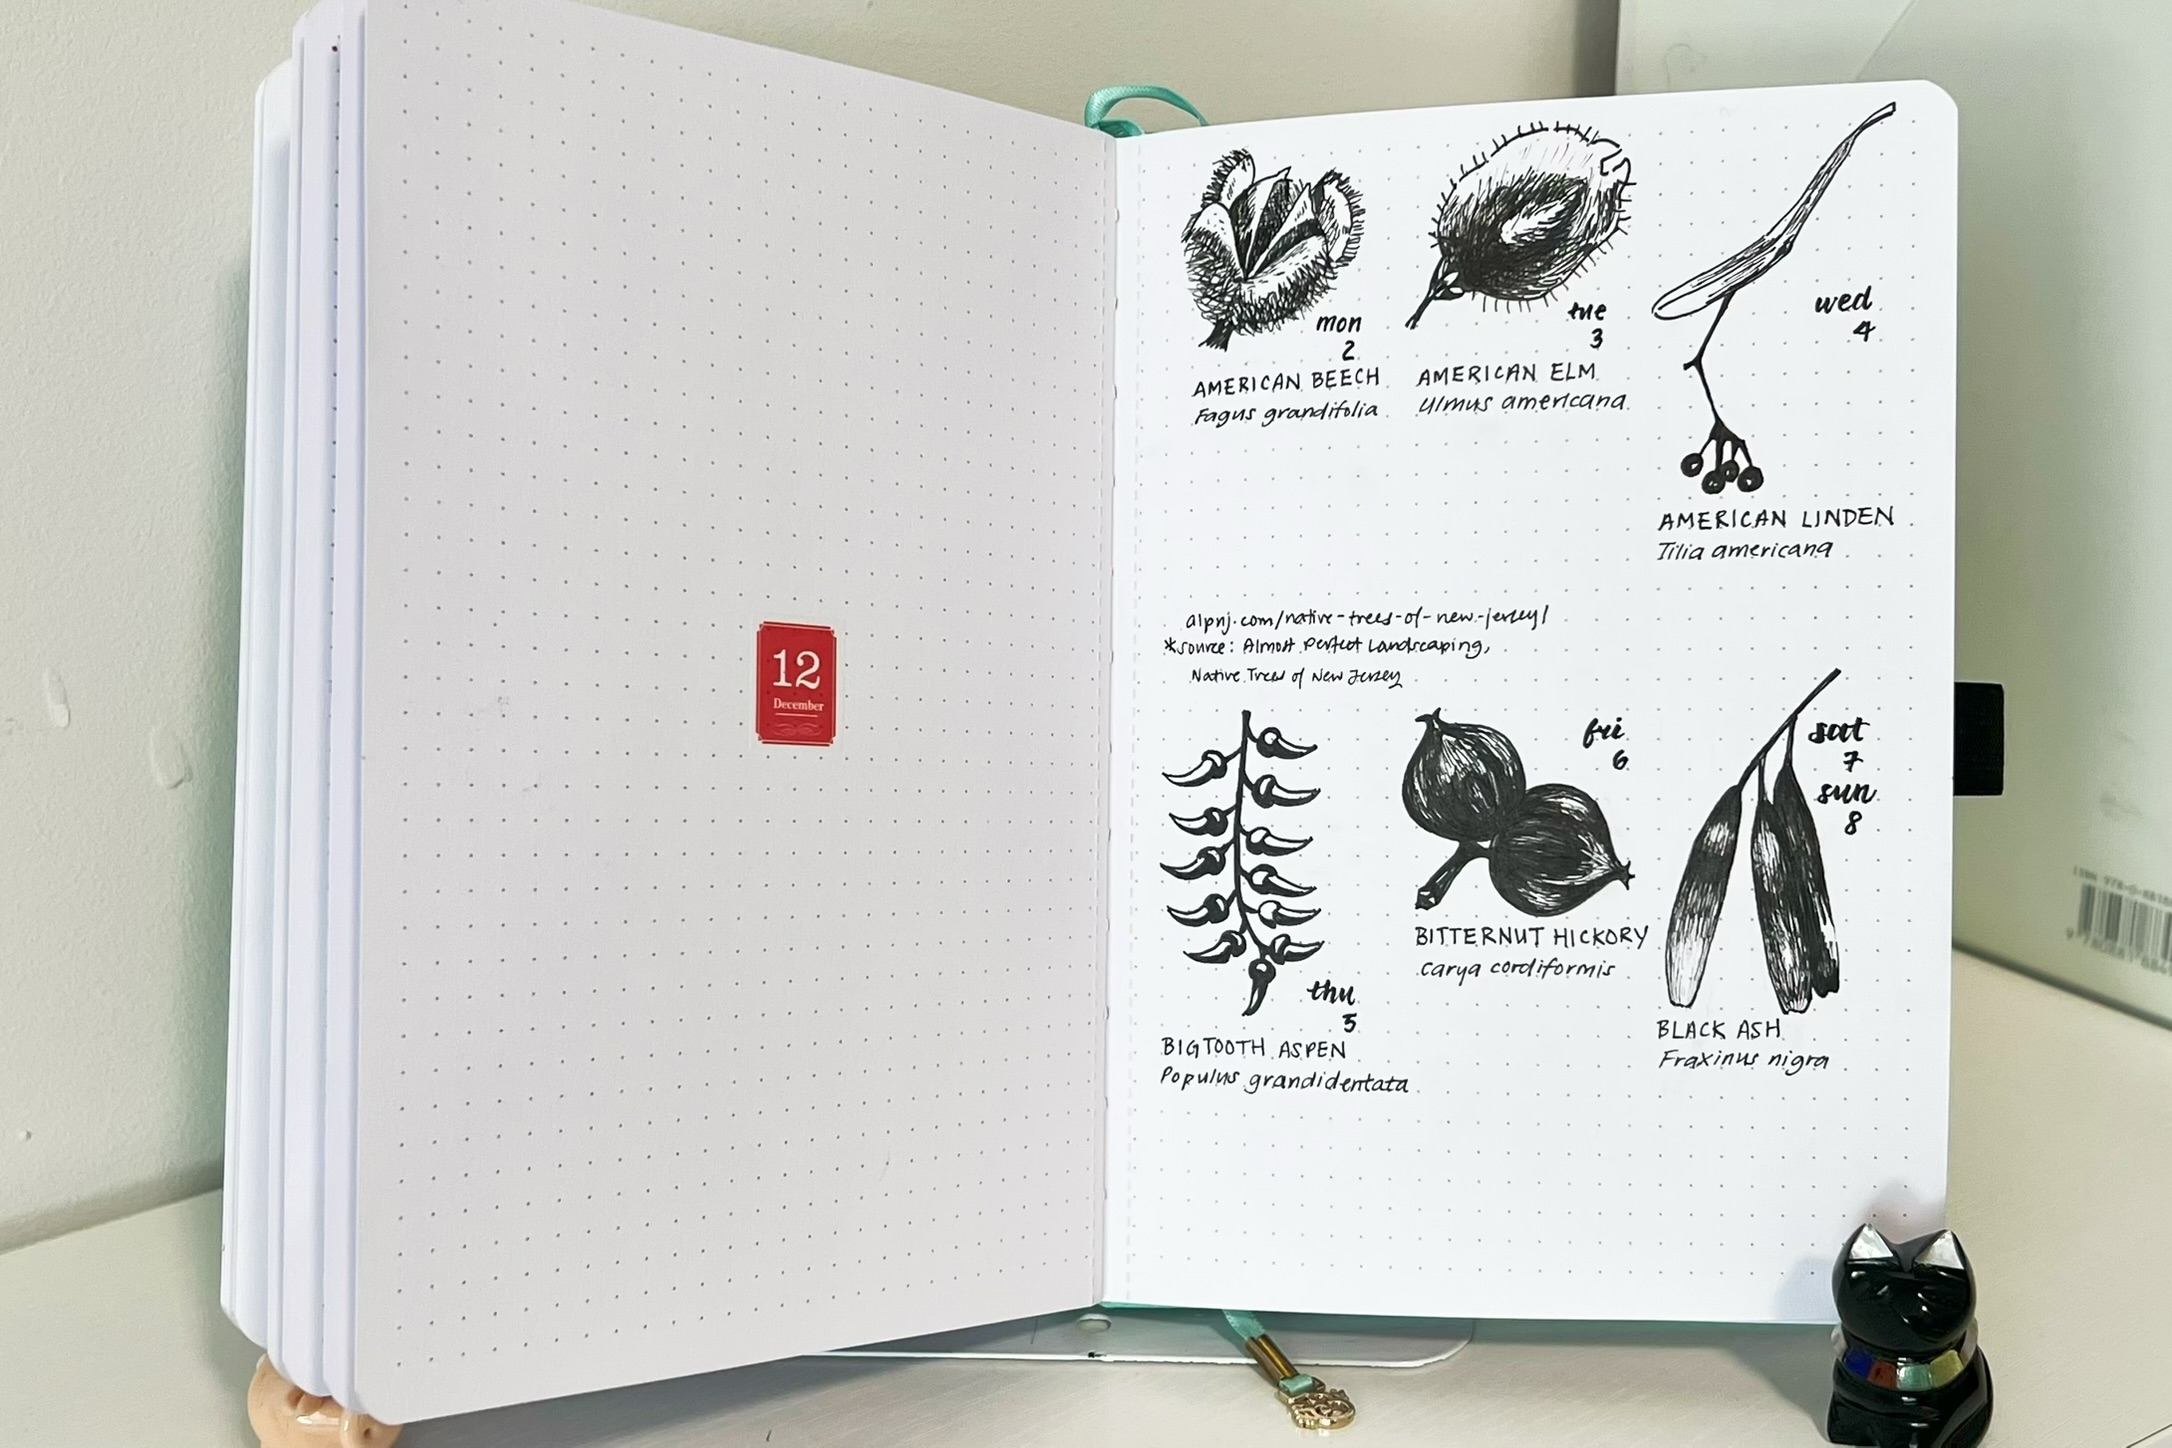 12
December
mon
2
AMERICAN BEECH
Fagus grandifolia
tue
3
AMERICAN ELM
Ulmus americana
wed
4
AMERICAN LINDEN
Tilia americana
alpnj.com/native-trees-of-new-jersey/
*source: Almost Perfect Landscaping,
Native Trees of New Jersey
thu
5
BIGTOOTH ASPEN
Populus grandidentata
fri
6
BITTERNUT HICKORY
Carya cordiformis
sat
7
sun
8
BLACK ASH
Fraxinus nigra